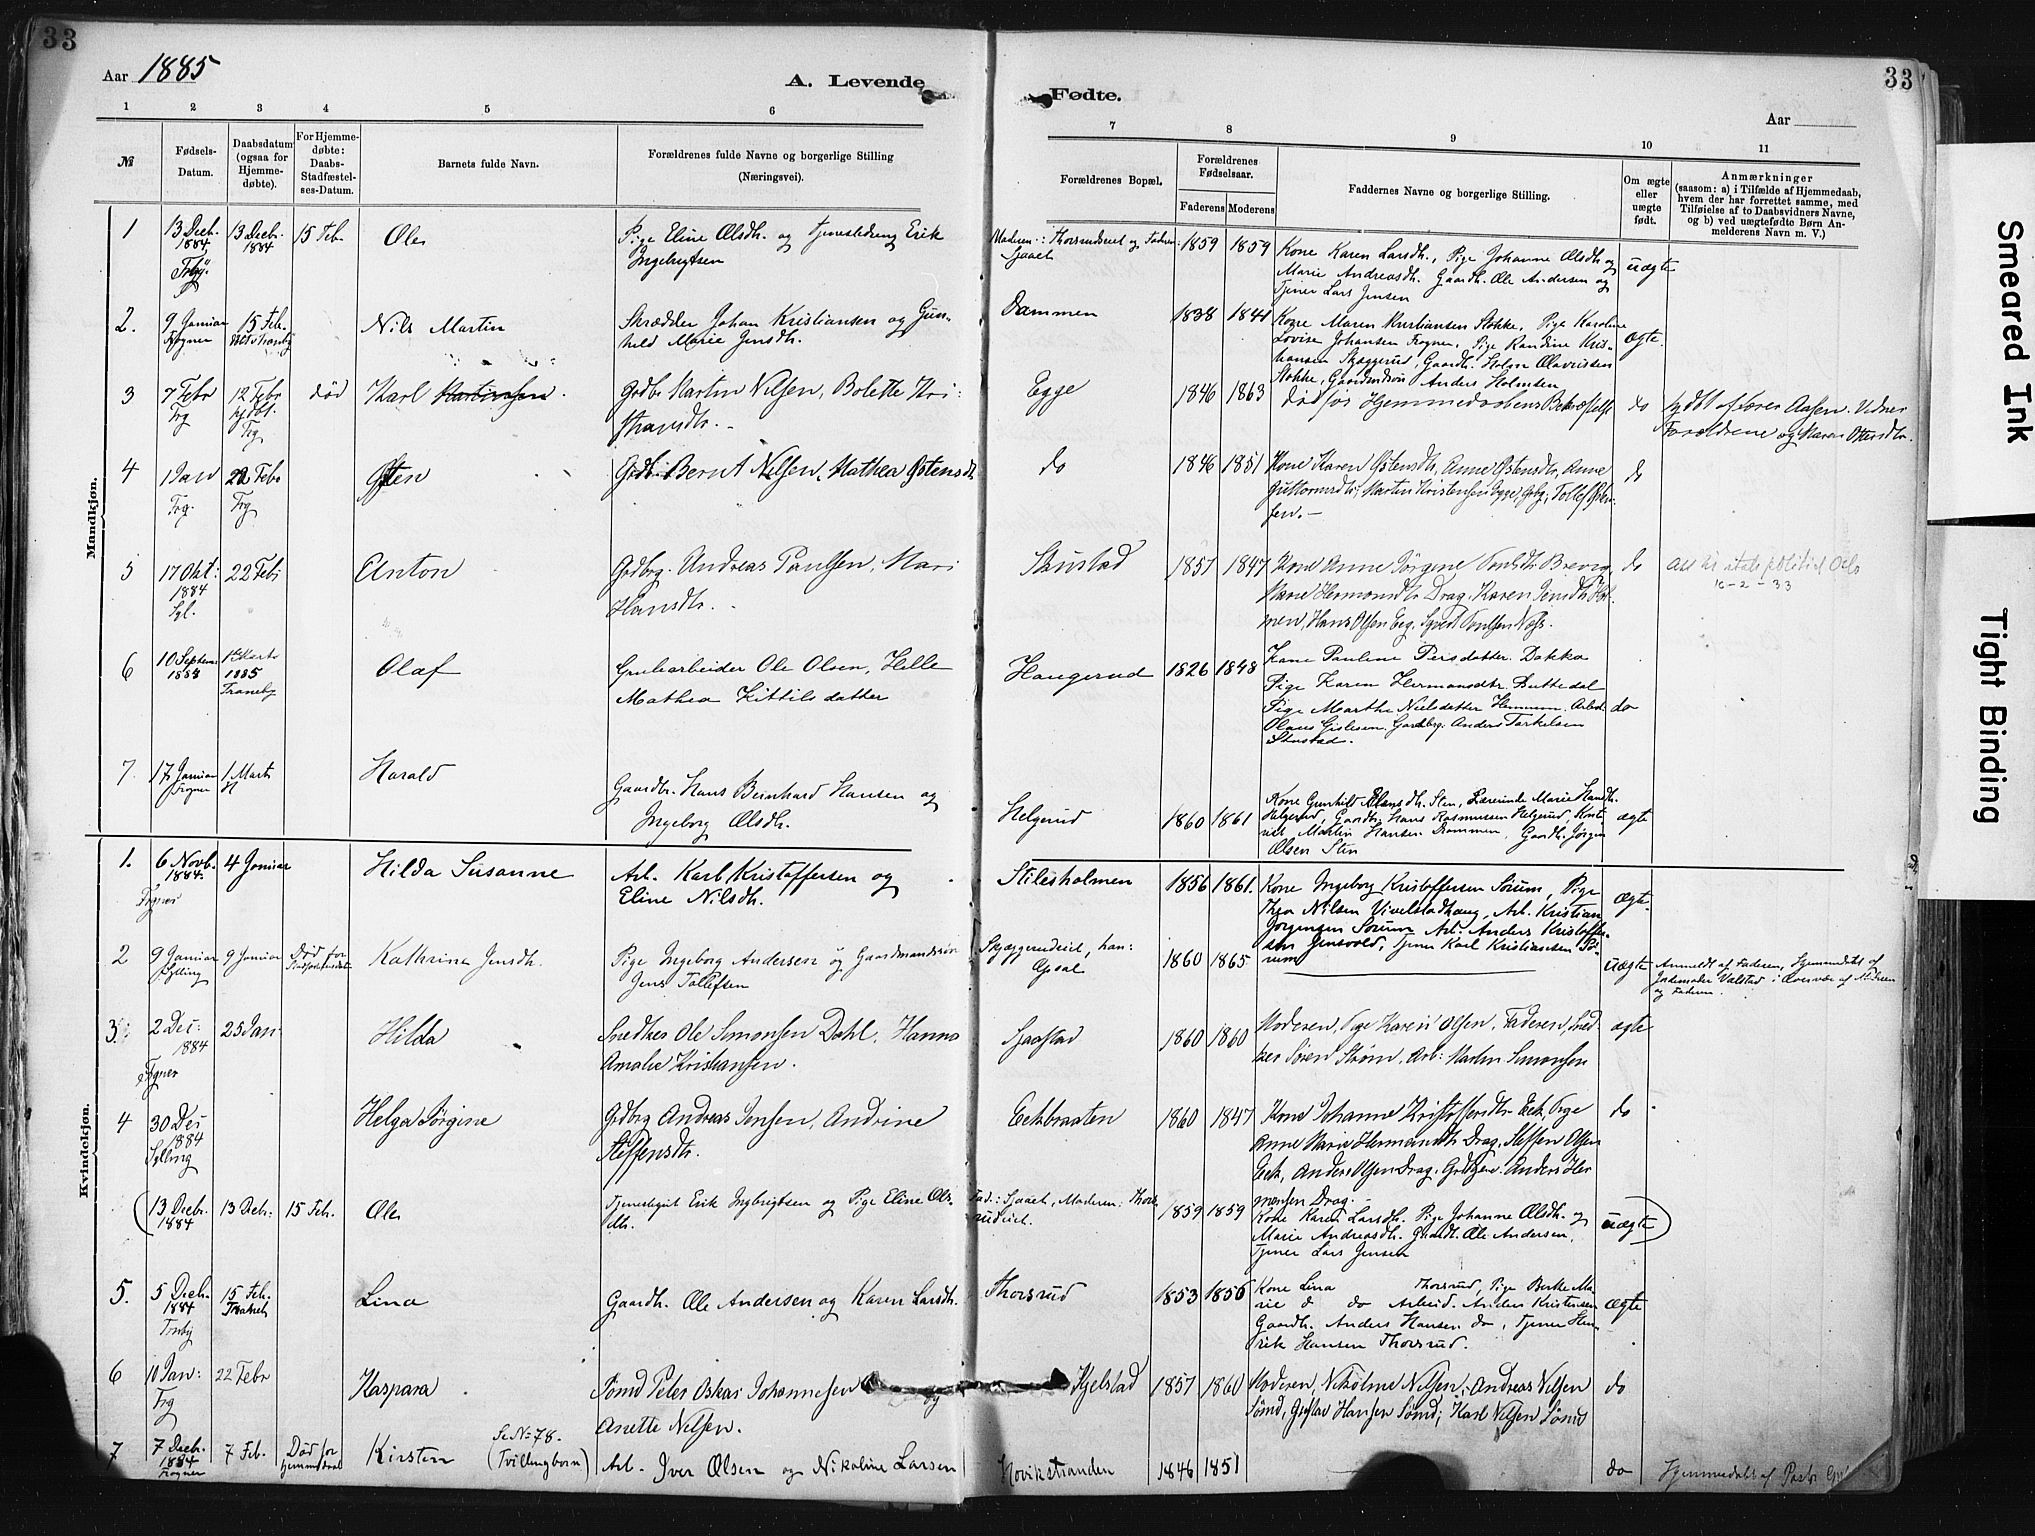 33
Aar 1885
A. Levende
Fødte.
33
Aar
1 2 3 4 5 6
7 8 9 10 11
№
Fødsels-
Datum.
Daabsdatum
(ogsaa for
Hjemme-
døbte).
For Hjemme-
døbte:
Daabs-
Stadfæstel-
ses-Datum.
Barnets fulde Navn.
Forældrenes fulde Navne og borgerlige Stilling
(Næringsvei).
Forældrenes Bopæl.
Forældrenes
Fødselsaar.
Faderens Moderens
Faddernes Navne og borgerlige Stilling.
Om ægte
eller
uægte
født.
Anmærkninger
(saasom: a) i Tilfælde af Hjemmedaab,
hvem der har forrettet samme, med
Tilføielse af to Daabsvidners Navne,
og b) ved uægtefødte Børn An-
melderens Navn m. V.)
Mandkjøn.
1 13 Decb. 1884 13 Decb. 1884 15 Feb. Ole
Pige Eline Olsdh. og Tjenestedreng Erik
Ingebrigtsen
1859 1859
Kone Karen Larsdh., Pige Johanne Olsdh og
Marie Andreasdh. Gaardb. Ole Andersen og
Tjener Lars Jensen
uægte
2. 9 Januar Frogner 15 Feb. Nils Martin
Skrædder Johan Kristiansen og Gun-
hild Marie Jensdh.
Dammen 1838 1841
Kone Maren Kristiansen Stokke, Pige Karoline
Lovise Johansen Frogner, Pige Randine Kris-
tiansen Skæggerud, Gaardb. Holm Olavessen
Stokke, Gaardmandssøn Anders Holmsen
ægte.
3 7 Febr Frg 12 Febr Frg død Karl
Grdbr Martin Nilsen, Bolette Kri-
stiansdtr.
Egge 1846 1863
død før Hjemmedaabens Bekræftelse
do
Forældrene og Maren Ottersdtr.
4 1 Jan Frg. 22 Febr Frg Østen
Grdb. Bernt Nilsen, Mathea Østensdt
do 1846 1851
Kone Karen Østensdtr, Anne Østensdtr, Anne
Guttormsdtr, Martin Kristensen Egge,
sen.
do
5 17 Okt: 1884 Syl. 22 Feb: Anton
Grdbrg. Andreas Paulsen, Mari
Hansdtr.
Skustad 1851 1847
Kone Anne Jørgine
Marie Hermansdtr Drag, Karen Jensdtr Hol-
men, Hans Olsen Eeg,
do
16-2-33
6 10 Septem 1884 1 Marts 1885 Traneby Olaf
Grubearbeider Ole Olsen, Helle
Mathea Kittilsdatter
Haugerud 1826 1848
Kone Pauline Persdatter Dokka
Pige Karen Hermansdtr. Buttedal
Pige Marthe Nielsdatter Hennum, Arbeid.
Olaus Gislesen, Gaardbrg. Anders Torkelsen
Skustad.
do
7. 17 Januar Frogner 1 Marts H Harald
Gaardbr. Hans Bernhard Hansen og
Ingeborg Olsdh.
Helgerud 1860 1861
Kone Gunhild Olausdh. Sten, Lærerinde Marie Hansdh.
Helgerud, Gaardb. Hans Rasmussen Helgerud,
Martin Hansen Drammen, Gaardb. Jørgen
Olsen Sten
ægte
Kvindekjøn.
1. 6 Novb. 1884. Frogner 4 Januar Hilda Susanne
Arb. Karl Kristoffersen og
Eline Nilsdh.
Stilesholmen 1856 1861.
Kone Ingeborg Kristoffersen Sørum, Pige
Thea Nilsen Vivelstadhaug, Arb. Kristian
Jørgensen Sørum Arb. Anders Kristoffer-
sen Jensvold; Tjener Karl Kristiansen Sø-
rum
ægte.
2 9 Januar Sylling 9 Januar Død før Kathrina Jensdh.
Pige Ingeborg Andersen og Gaardmandssøn
Jens Tollefsen
Skjæggerudeiet, han:
Opsal
1860 1865
uægte
Anmeldt af Faderen, Hjemmedøbt af
Jordemoder Valstad i Overvær af Moderen
og Faderen.
3. 2 Dec: 1884 Frogner 25 Jan: Hilda
Snedker Ole Simonsen Dahl, Hanna
Amalie Kristiansen.
Gaastad 1860 1860
Moderen, Pige Karen Olsen. Faderen, Sned-
ker Søren Strøm, Arb: Martin Simonsen
ægte
4 30 Dec 1884 Sylling Helga Jørgine
Grdbrg Andreas Jensen, Andrine
Steffensdtr.
Eekbraaten 1860 1847
Kone Johanne Kristoffersdtr Eek, Pige
Anne Marie Hermansdtr Drag, Steffen Olsen
Eek, Anders Olsen Drag, Anders Her-
mansen Drag.
do
(13 Decb. 1884 13 Decb. 15 Feb. Ole
Tjenestegut Erik Ingebrigtsen og Pige Eline Ols-
dh.
1859 1859
Kone Karen Larsdh. Pige Johanne Olsdh. og
Marie Andreasdh. Gaardb. Ole Andersen,
Tjener Lars Jensen
uægte)
5. 5 Decb. 1884 Trnby 15 Feb. Traneb Lina
Gaardb. Ole Andersen og Karen Larsdh.
Thorsrud 1853 1856
Kone Lina Thorsrud, Pige Berthe Ma-
rie do Arbeid. Anders Kristensen
Gaardb. Anders Hansen do, Tjener Hen-
rik Hansen Thorsrud.
ægte
6 10 Jan: Frg 22 Febr Kaspara
Sømd Peter Oskar Johannesen og
Anette Nilsen.
Kjelstad 1857 1860
Moderen, Nikoline Nilsen, Andreas Nilsen
Sømd, Gustav Hansen Sømd; Karl Nilsen Sømd
do
7 7 Decb. 1884 Frogner 7 Feb. Død før Hjemmedaab Kirsten Se No 78. (Tvillingbørn)
Arb. Iver Olsen og Nikoline Larsen
Hovikstranden 1846 1851
do
Hjemmedøbt af Pastor
Smeared Ink
Tight Binding